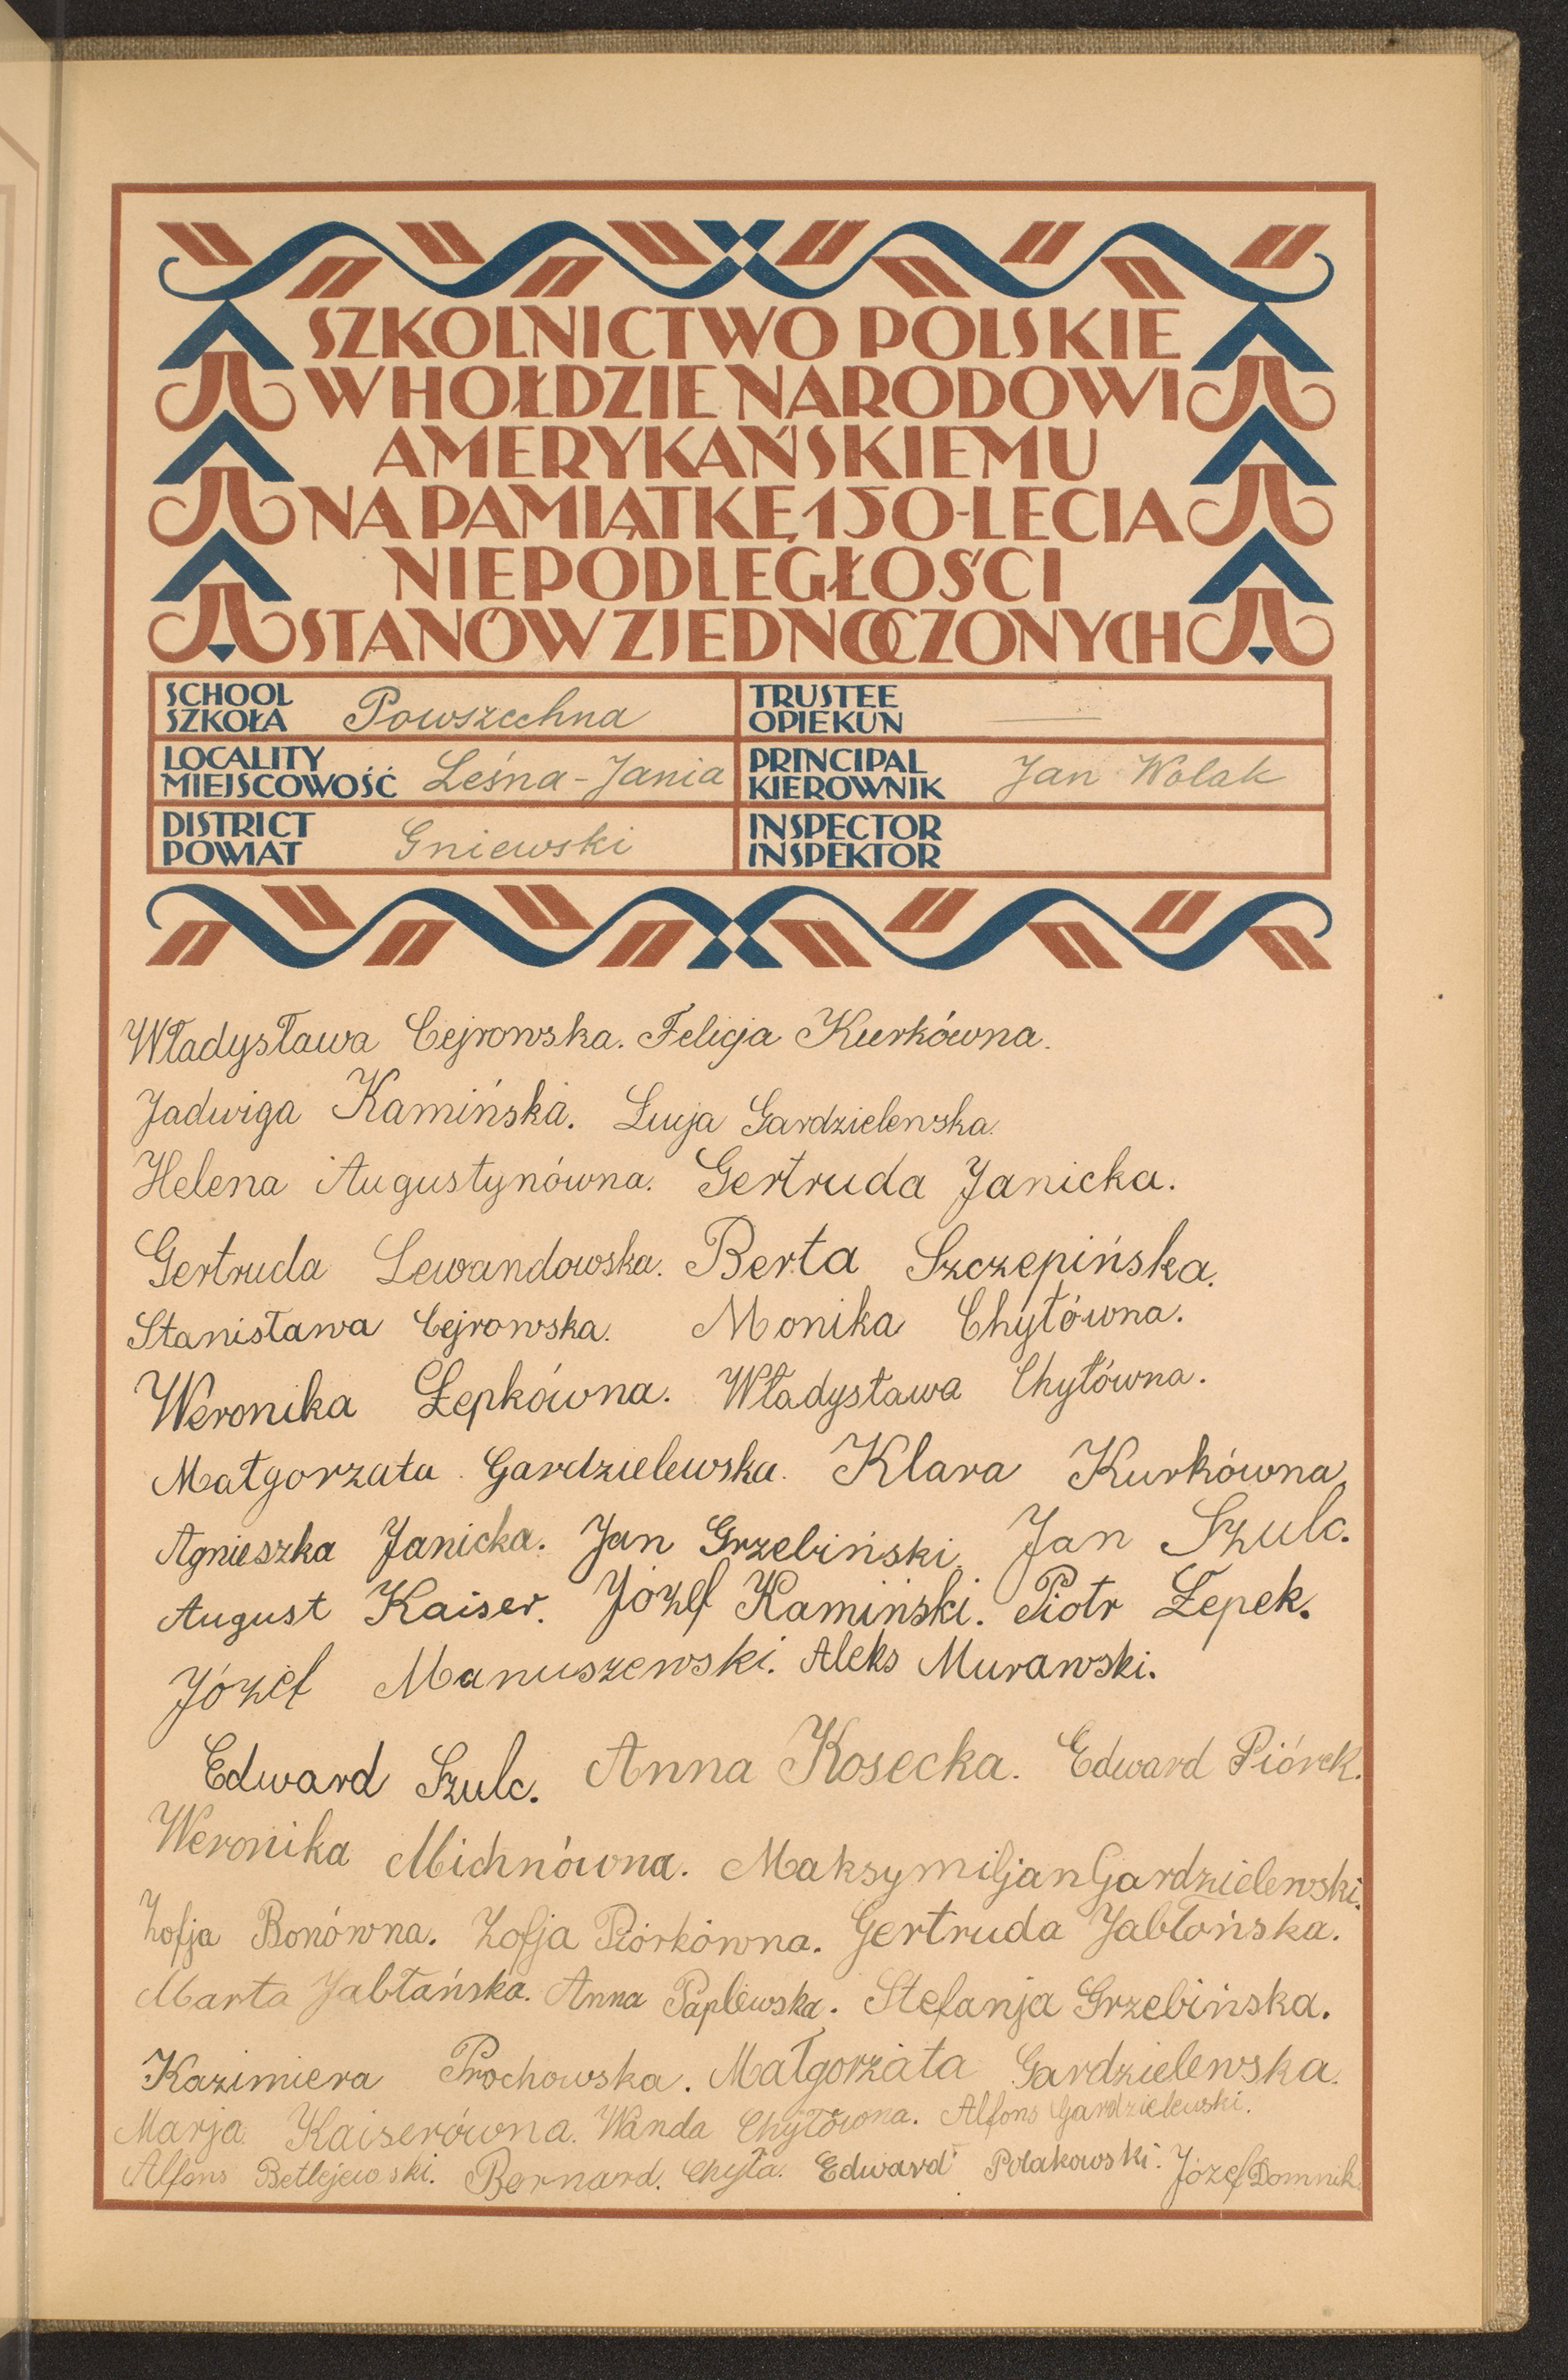 SZKOLNICTWO POLSKIE
W HOŁDZIE NARODOWI
AMERYKAŃSKIEMU
NA PAMIĄTKĘ 150-LECIA
NIEPODLEGŁOŚCI
STANÓW ZJEDNOCZONYCH
SCHOOL
SZKOŁA Powszechna
TRUSTEE
OPIEKUN
LOCALITY
MIEJSCOWOŚĆ Leśna-Jania
PRINCIPAL
KIEROWNIK Jan Wolak
DISTRICT
POWIAT Gniewski
INSPECTOR
INSPEKTOR
Władysława Cejrowska. Felicja Kurkówna.
Jadwiga Kamińska. Lucja Gardzielewska.
Helena Augustynówna. Gertruda Janicka.
Gertruda Lewandowska. Berta Szczepińska.
Stanisława Cejrowska. Monika Chyłówna.
Weronika Łepkówna. Władysława Chyłówna.
Małgorzata Gardzielewska. Klara Kurkówna,
Agnieszka Janicka. Jan Grzebiński. Jan Szulc.
August Kaiser. Józef Kamiński. Piotr Łepek.
Józef Manuszewski. Aleks Murawski.
Edward Szulc. Anna Kosecka. Edward Piórek.
Weronika Michnówna. Maksymiljan Gardzielewski.
Zofja Bonówna. Zofja Piórkówna. Gertruda Jabłońska.
Marta Jabłańska. Anna Paplewska. Stefanja Grzebińska.
Kazimiera Prochowska. Małgorzata Gardzielewska.
Marja Kaiserówna. Wanda Chyłówna. Alfons Gardzielewski.
Alfons Betlejewski. Bernard. Chyła. Edward Polakowski. Józef Domnik.